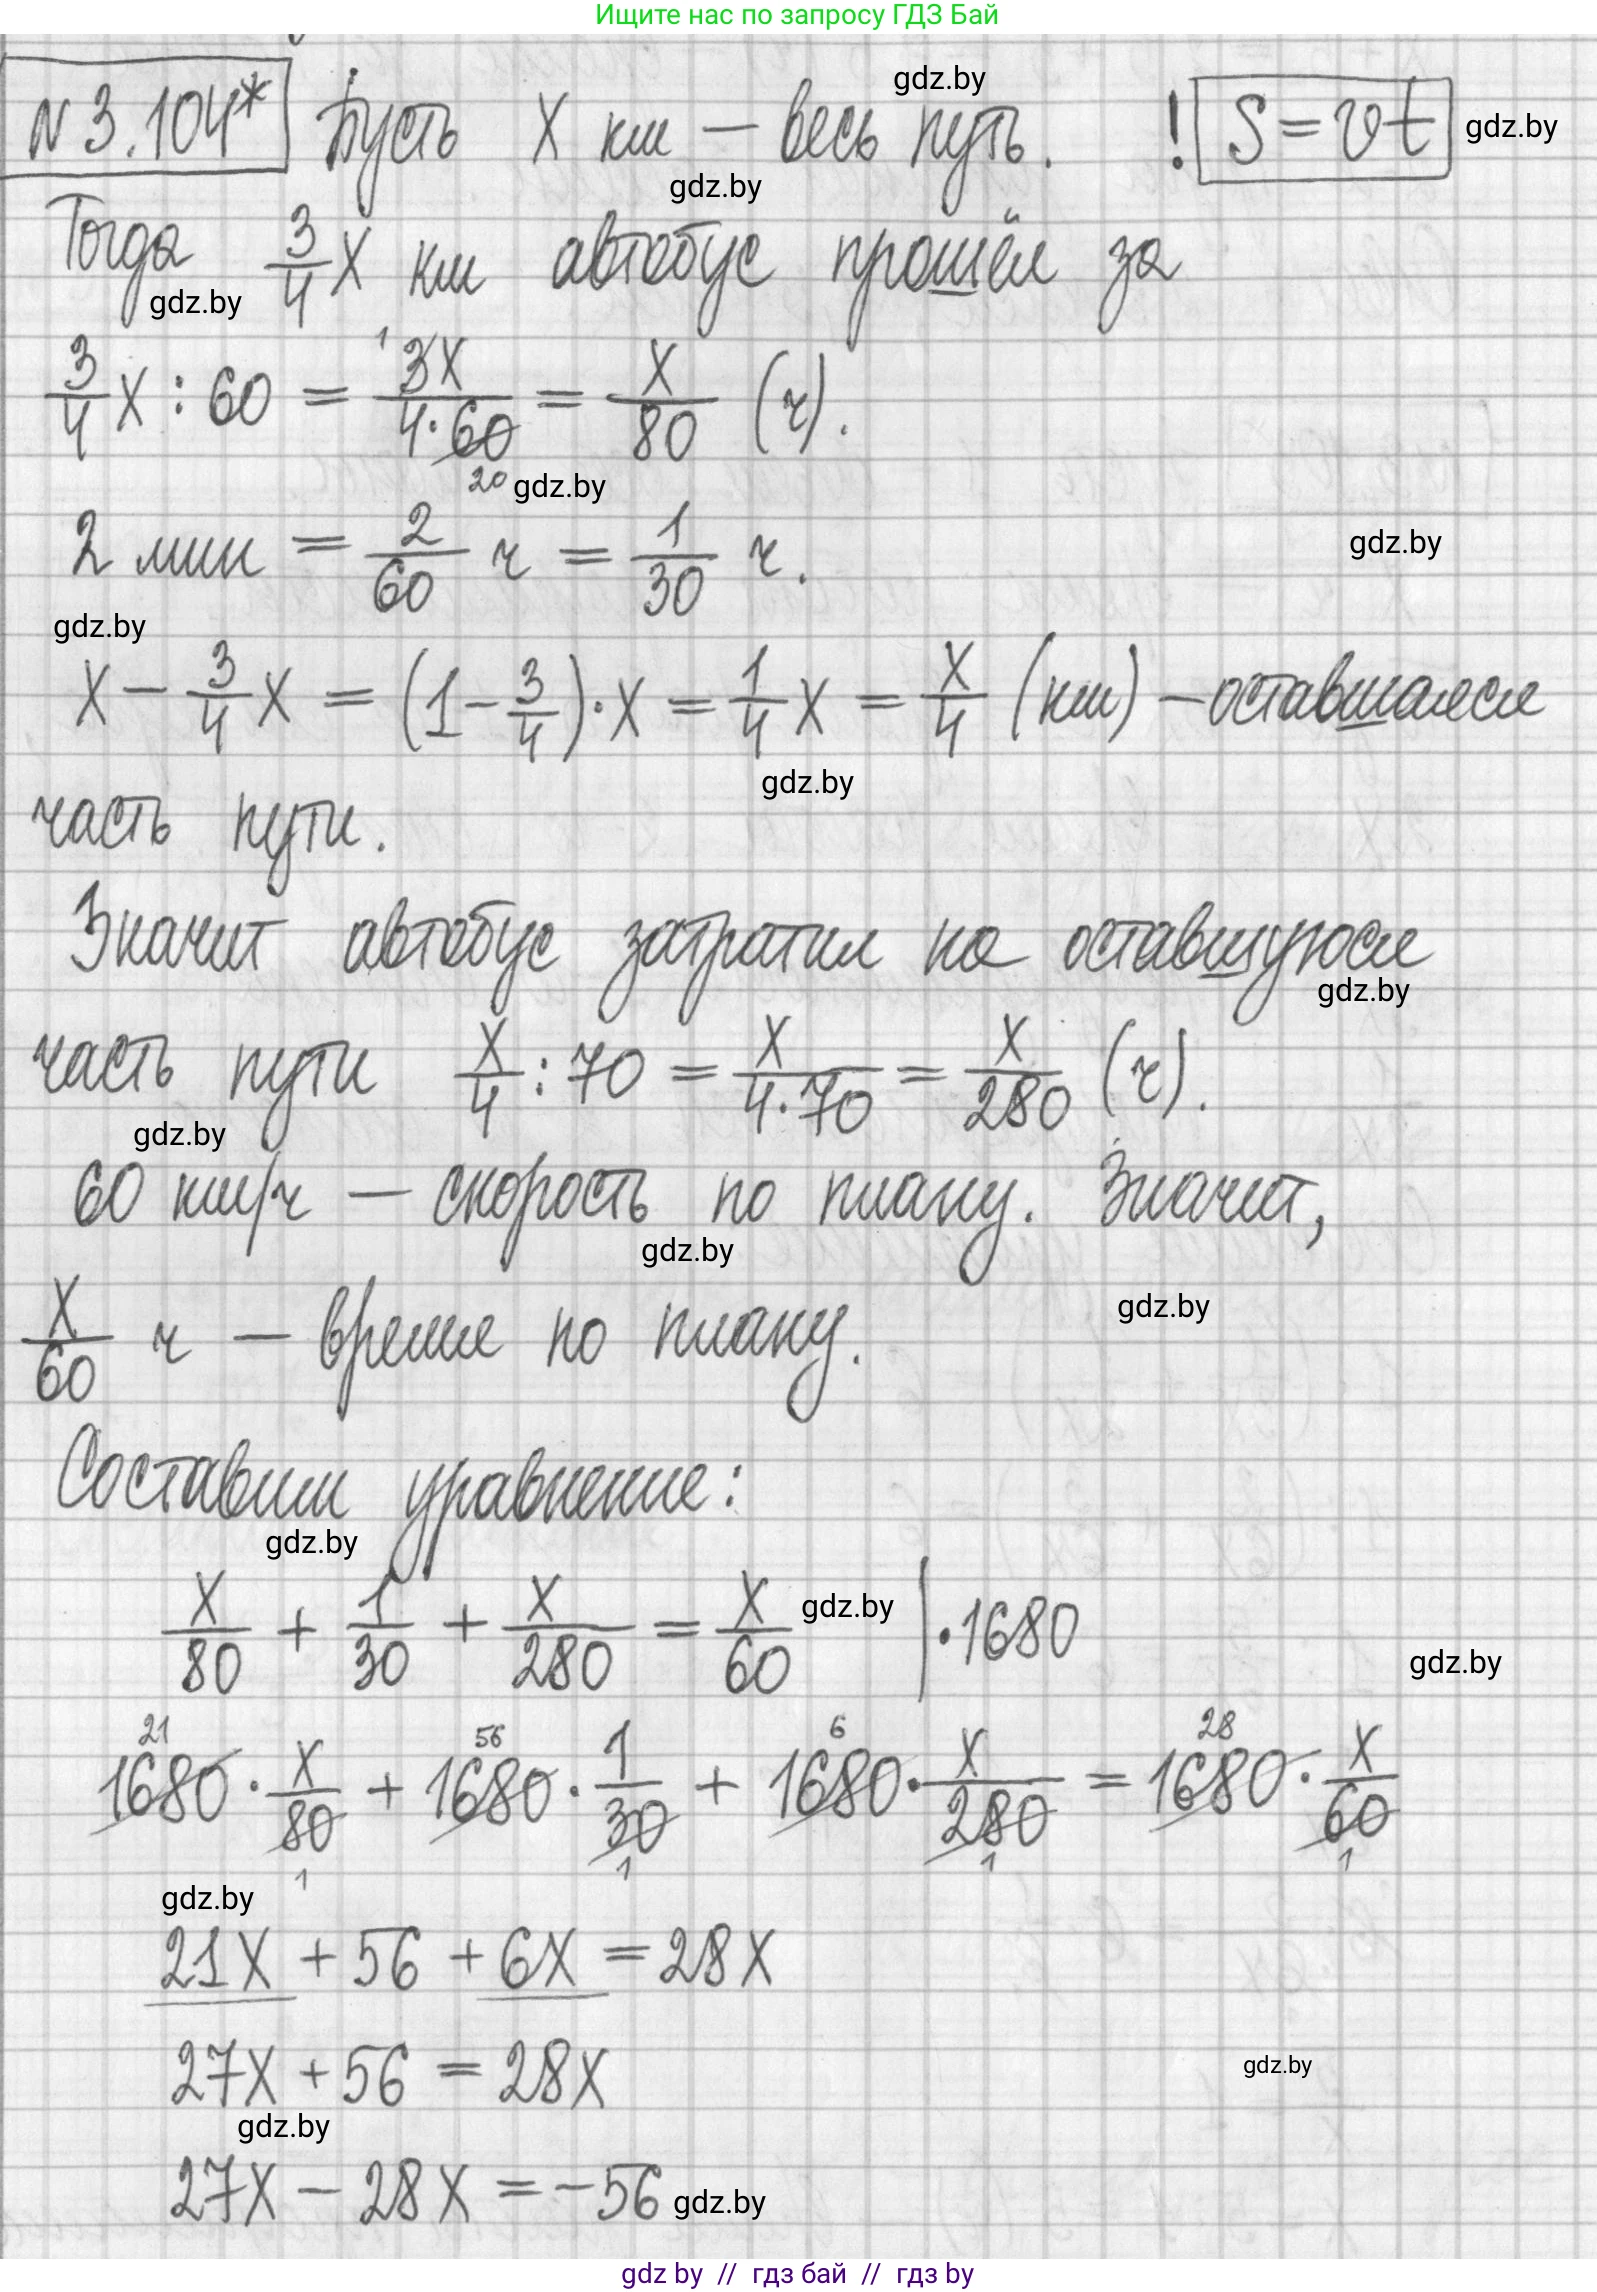 Ищите нас по запросу ГДЗ Бай
N 3.104* Пусть x км – весь путь. ! S = vt
gdz.by
gdz.by
gdz.by
Тогда 3/4 x км автобус прошёл за
gdz.by
3/4 x : 60 = 3x/(4·60) = x/80 (ч).
1
20
gdz.by
2 мин = 2/60 ч = 1/30 ч.
gdz.by
gdz.by
x – 3/4 x = (1 – 3/4)·x = 1/4 x = x/4 (км) – оставшаяся
gdz.by
часть пути.
Значит автобус затратил на оставшуюся
gdz.by
часть пути x/4 : 70 = x/(4·70) = x/280 (ч).
gdz.by
60 км/ч – скорость по плану. Значит,
gdz.by
x/60 ч – время по плану.
gdz.by
Составим уравнение:
gdz.by
x/80 + 1/30 + x/280 = x/60 | ·1680
gdz.by
gdz.by
21 56 6 28
1680 · x/80 + 1680 · 1/30 + 1680 · x/280 = 1680 · x/60
1 1 1 1
gdz.by
21x + 56 + 6x = 28x
27x + 56 = 28x
gdz.by
gdz.by
27x – 28x = –56
gdz.by
gdz by // гдз бай // гдз by